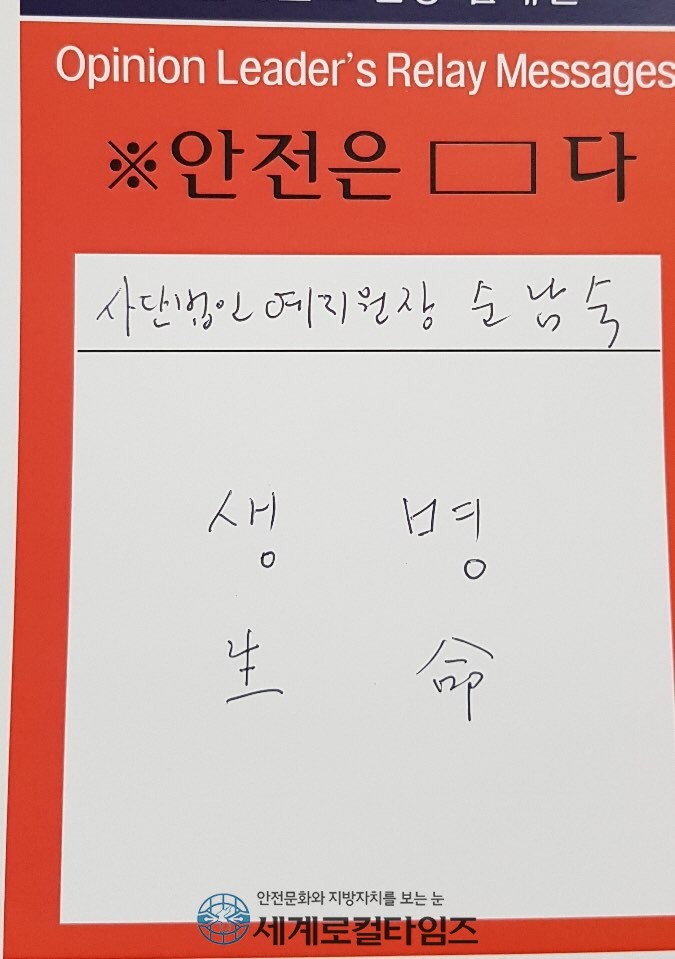 Opinion Leader's Relay Messages
※안전은 □ 다
사단법인 예지원장 순남숙
생 명
生 命
안전문화와 지방자치를 보는 눈
세계로컬타임즈